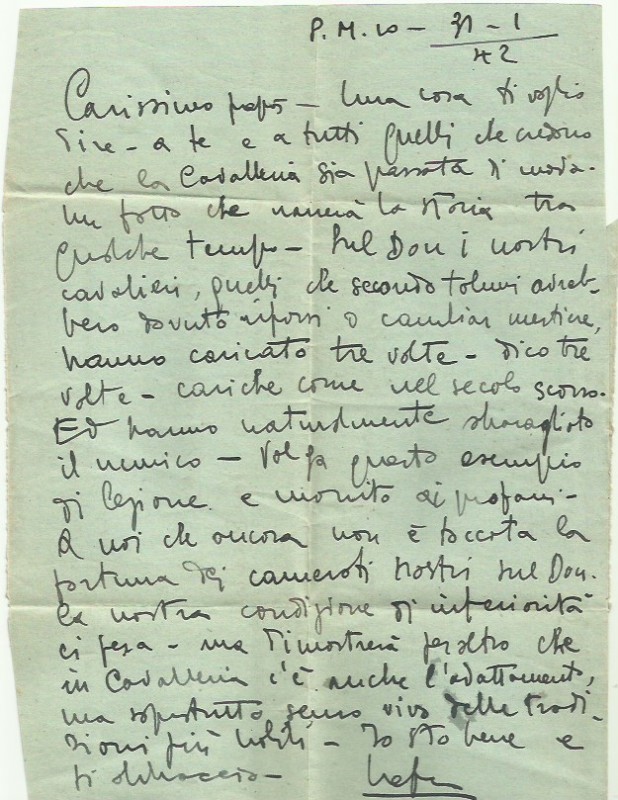 P. M. 10 - 31 - 1
42
Carissimo papà - Una cosa ti voglio
dire - a te e a tutti quelli che credono
che la Cavalleria sia passata di moda.
Un fatto che narrerà la storia tra
qualche tempo - Sul Don i nostri
cavalieri, quelli che secondo taluni avreb-
bero dovuto riporsi o cambiar mestiere,
hanno caricato tre volte - dico tre
volte - cariche come nel secolo scorso.
Ed hanno naturalmente sbaragliato
il nemico - Valga questo esempio
di lezione e monito ai profani -
A noi che ancora non è toccata la
fortuna dei camerati nostri sul Don.
La nostra condizione di inferiorità
ci pesa - ma dimostrerà peraltro che
in Cavalleria c'è anche l'adattamento,
ma soprattutto senso vivo delle tradi-
zioni più nobili - Io sto bene e
ti abbraccio -